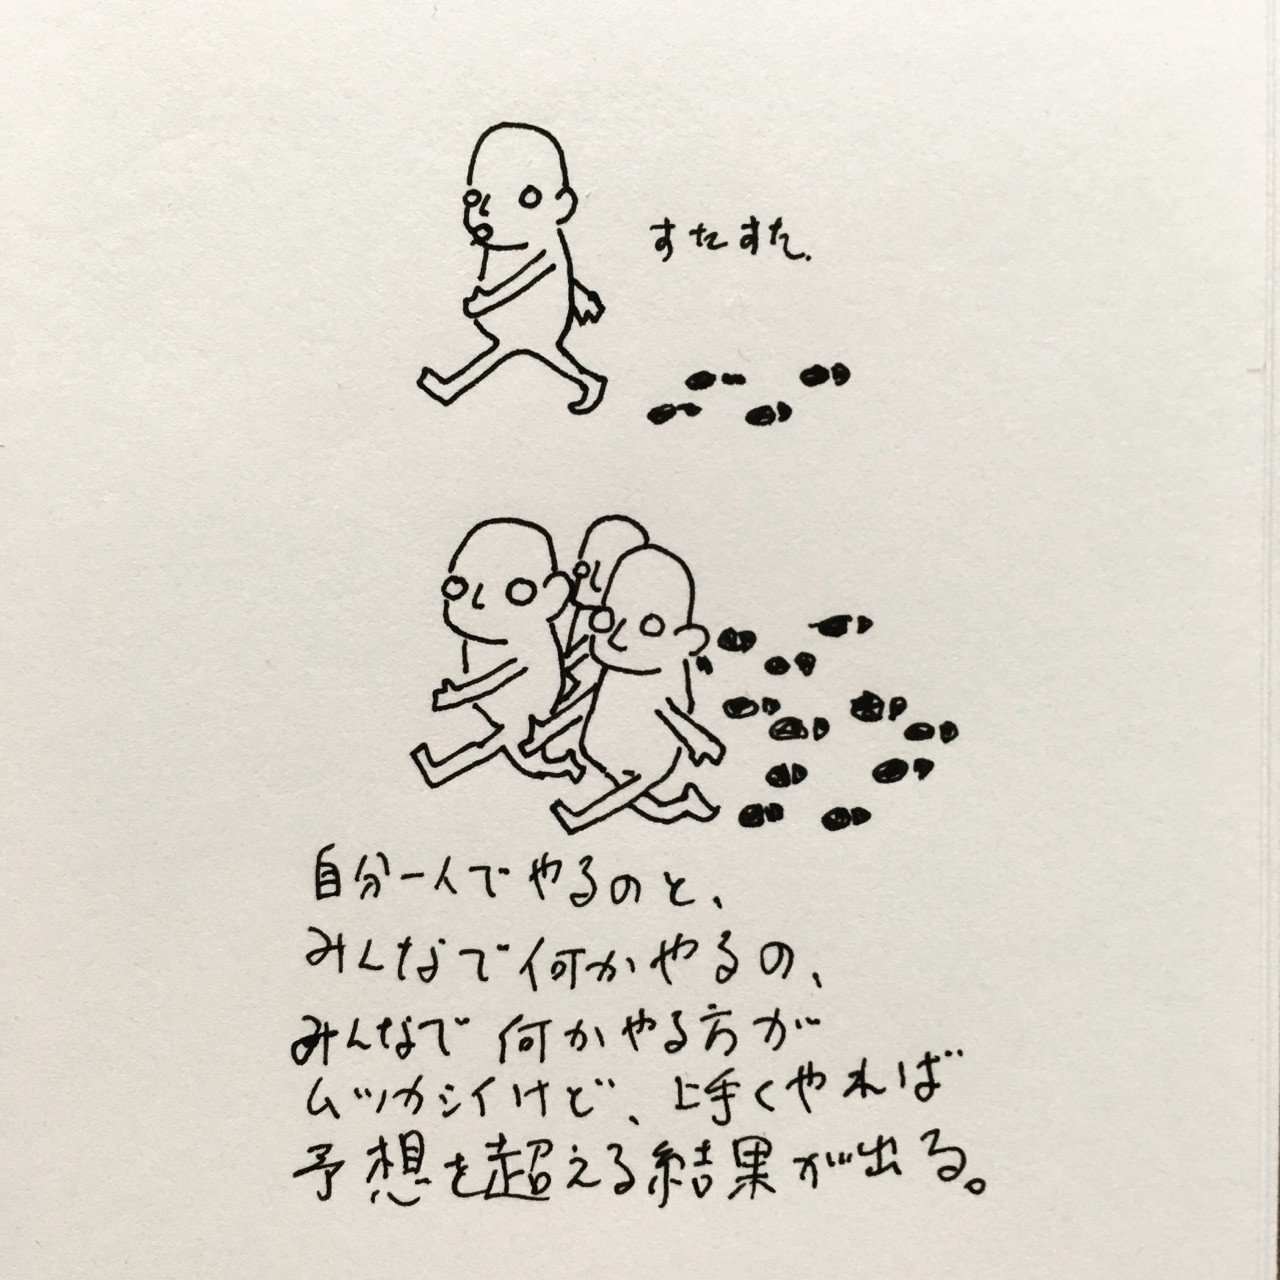 すたすた.
自分一人でやるのと、
みんなで何かやるの、
みんなで何かやる方が
ムツカシイけど、上手くやれば
予想を超える結果が出る。